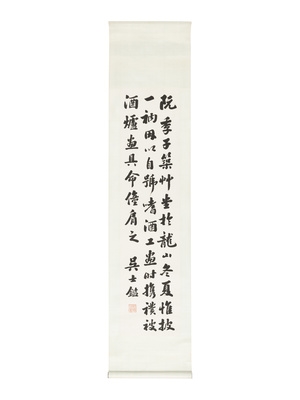 阮季子築艸堂於龍山冬夏惟披
一衲因以自號嗜酒工畫時攜襆被
酒爐畫具命僮肩之 吳士鑑